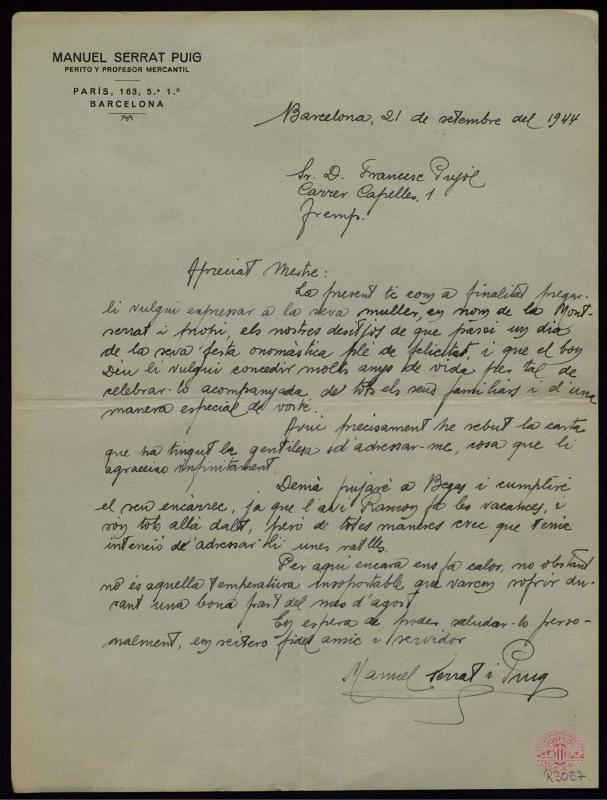 MANUEL SERRAT PUIG
PERITO Y PROFESOR MERCANTIL
PARÍS, 163, 5.º 1.ª
BARCELONA
Barcelona, 21 de setembre del 1944
Sr. D. Francesc Pujol
Carrer Capelles, 1
Tremp.
Apreciat Mestre:
La present té com a finalitat pregar-
li vulgui expressar a la seva muller, en nom de la Mont-
serrat i propi, els nostres desitjos de que passi un dia
de la seva festa onomàstica plé de felicitat, i que el bon
Déu li vulgui concedir molts anys de vida per tal de
celebrar-lo acompanyada de tots els seus familiars i d'una
manera especial de vosté.
Avui precisament he rebut la carta
que ha tingut la gentilesa d'adressar-me, cosa que li
agraeixo infinitament.
Demà pujaré a Begas i cumpliré
el seu encàrrec, ja que l'avi Ramon fa les vacances, i
són tots allà dalt, peró de totes maneres crec que tenia
intenció de adressar-li unes ratlles.
Per aquí encara ens fa calor, no obstant
no és aquella temperatura insoportable que varem sofrir du-
rant una bona part del mes d'agost
En espera de poder saludar-lo perso-
nalment, em reitero fidel amic i servidor
Manuel Serrat i Puig
R3097